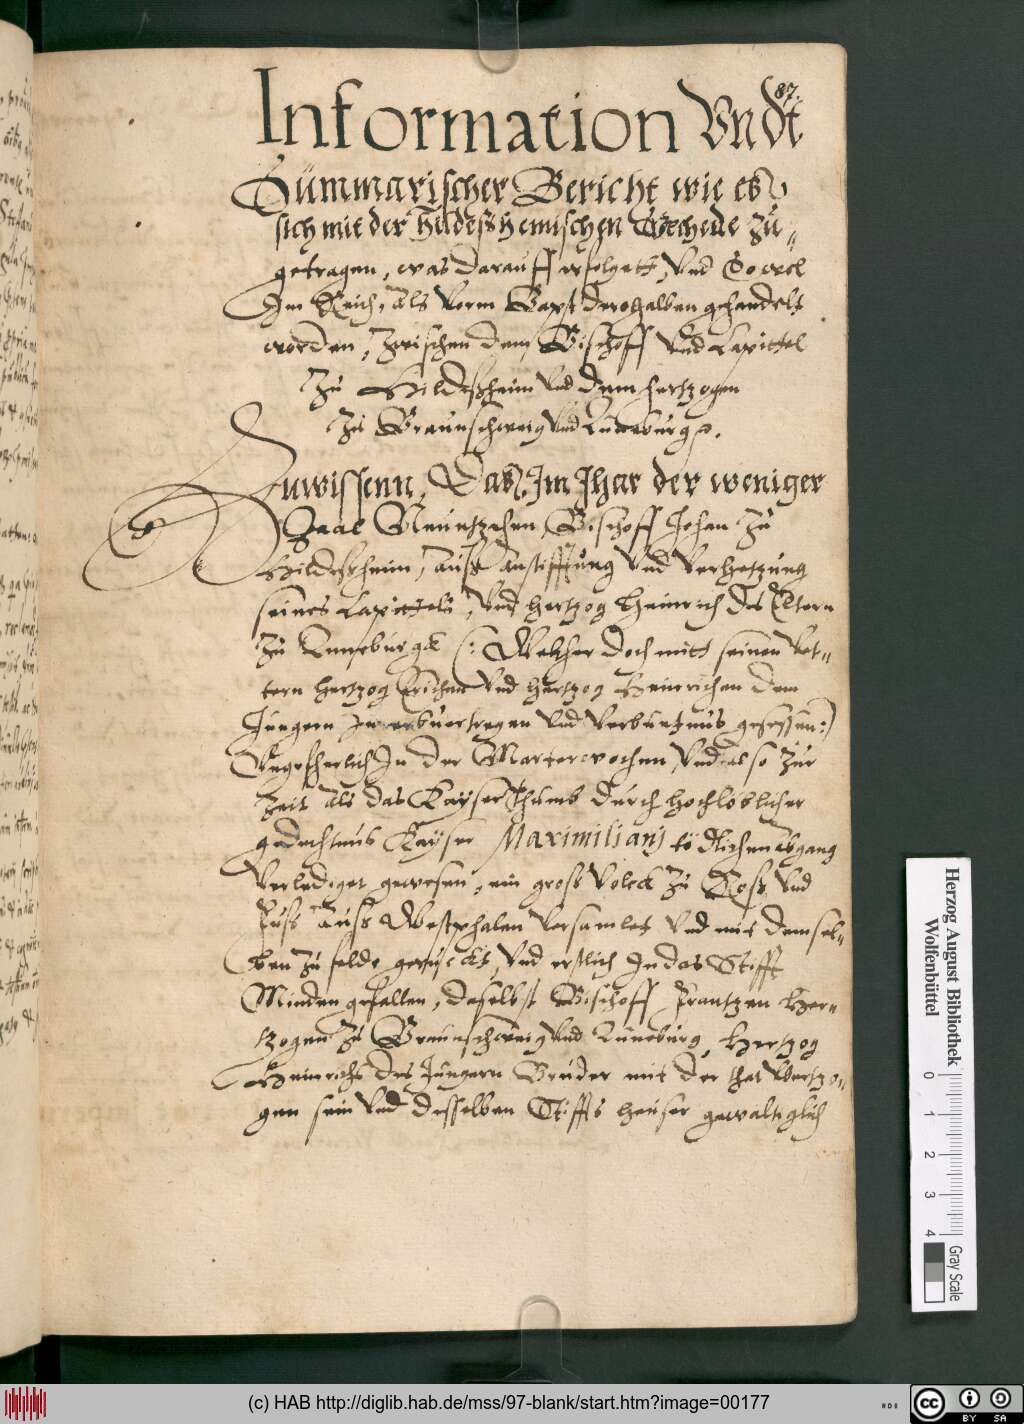 87.
Information Vndt
Summarischer Bericht wie es
sich mit der Hildeßhemischen Vechede zu-
getragen, was darauff erfolgett, Vnd Sowol
Im Reich, Als Vorm Bapst derohalben gehandelt
worden, Zwischen dem Bischoff Vnd Capittel
Zu Hildeßheim Vnd dem hertzogen
Zu Braunschweig Vnd Luneburg
Zuwissenn, Das Im Jhar der weniger
Zaal Neuntzehen, Bischoff Johan Zu
Hildeßheim, Auß Anstifftung Vnd Verhetzung
seines Capittels, Vnd hertzog Heinrich des Eltern
Zu Luneburgk (: Welcher doch mitt seinen Vet-
tern hertzog Erichen Vnd hertzog Heinrichen dem
Jungern In Vnd Verbuntnus gesessen:)
Vngefherlich In der Marterwochen, Vnd also zur
Zeit als das Kayserthumb durch hochlöblicher
gedechtnus Kayser Maximiliani tödtlichen Abgang
Verlediget gewesen, ein gross Volck Zu Ross Vnd
Fuss Auss Westphalen Versamlet Vnd mit demsel-
ben Zu felde geruckt, Vnd erstlich In das Stifft
Minden gefallen, daselbst Bischoff Frantzen Her-
tzogen Zu Braunschweig Vnd Luneburg, Hertzog
Heinrichs des Jungern Bruder mit der that
gen sein Vnd desselben Stiffts heuser gewaltiglich
Herzog August Bibliothek
Wolfenbüttel
0 1 2 3 4
Gray Scale
(c) HAB http://diglib.hab.de/mss/97-blank/start.htm?image=00177
cc BY SA